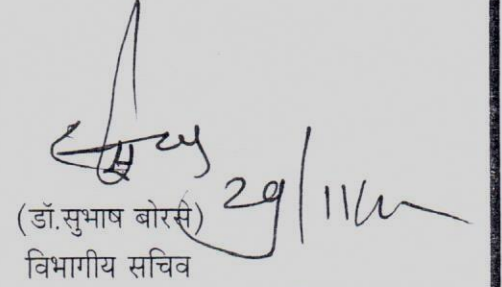 29/11
(डॉ.सुभाष बोरसे)
विभागीय सचिव